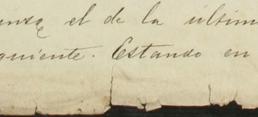 el de la ultim
quiente. Estando en